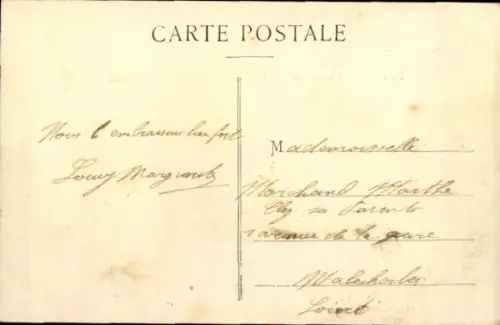 CARTE POSTALE
Nous t embrassons bien fort
Louis Marguerite
Mademoiselle
Marchand Marthe
Chez ses Parents
avenue de la gare
Malesherbes
Loiret